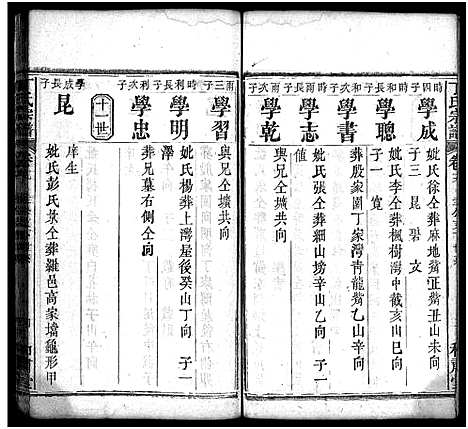 時四子
學成
妣氏徐仝葬麻地觜正觜丑山未向
子三 昆 碧 文
時和長子
學聰
妣氏李仝葬楓樹灣中截亥山巳向
子一 寬
時和次子
學書
葬殷家園丁家灣青龍觜乙山辛向
時雨長子
學志
妣氏張仝葬細山塝辛山乙向 子一
催
時雨次子
學乾
與兄仝壙共向
時雨三子
學習
與兄仝壙共向
時利長子
學明
妣氏楊葬上灣屋後癸山丁向 子一
澤
時利次子
學忠
葬兄墓右側仝向
十一世
學成長子
昆
庠生
妣氏彭氏黃仝葬羅邑高家壋龜形甲
丁氏宗譜